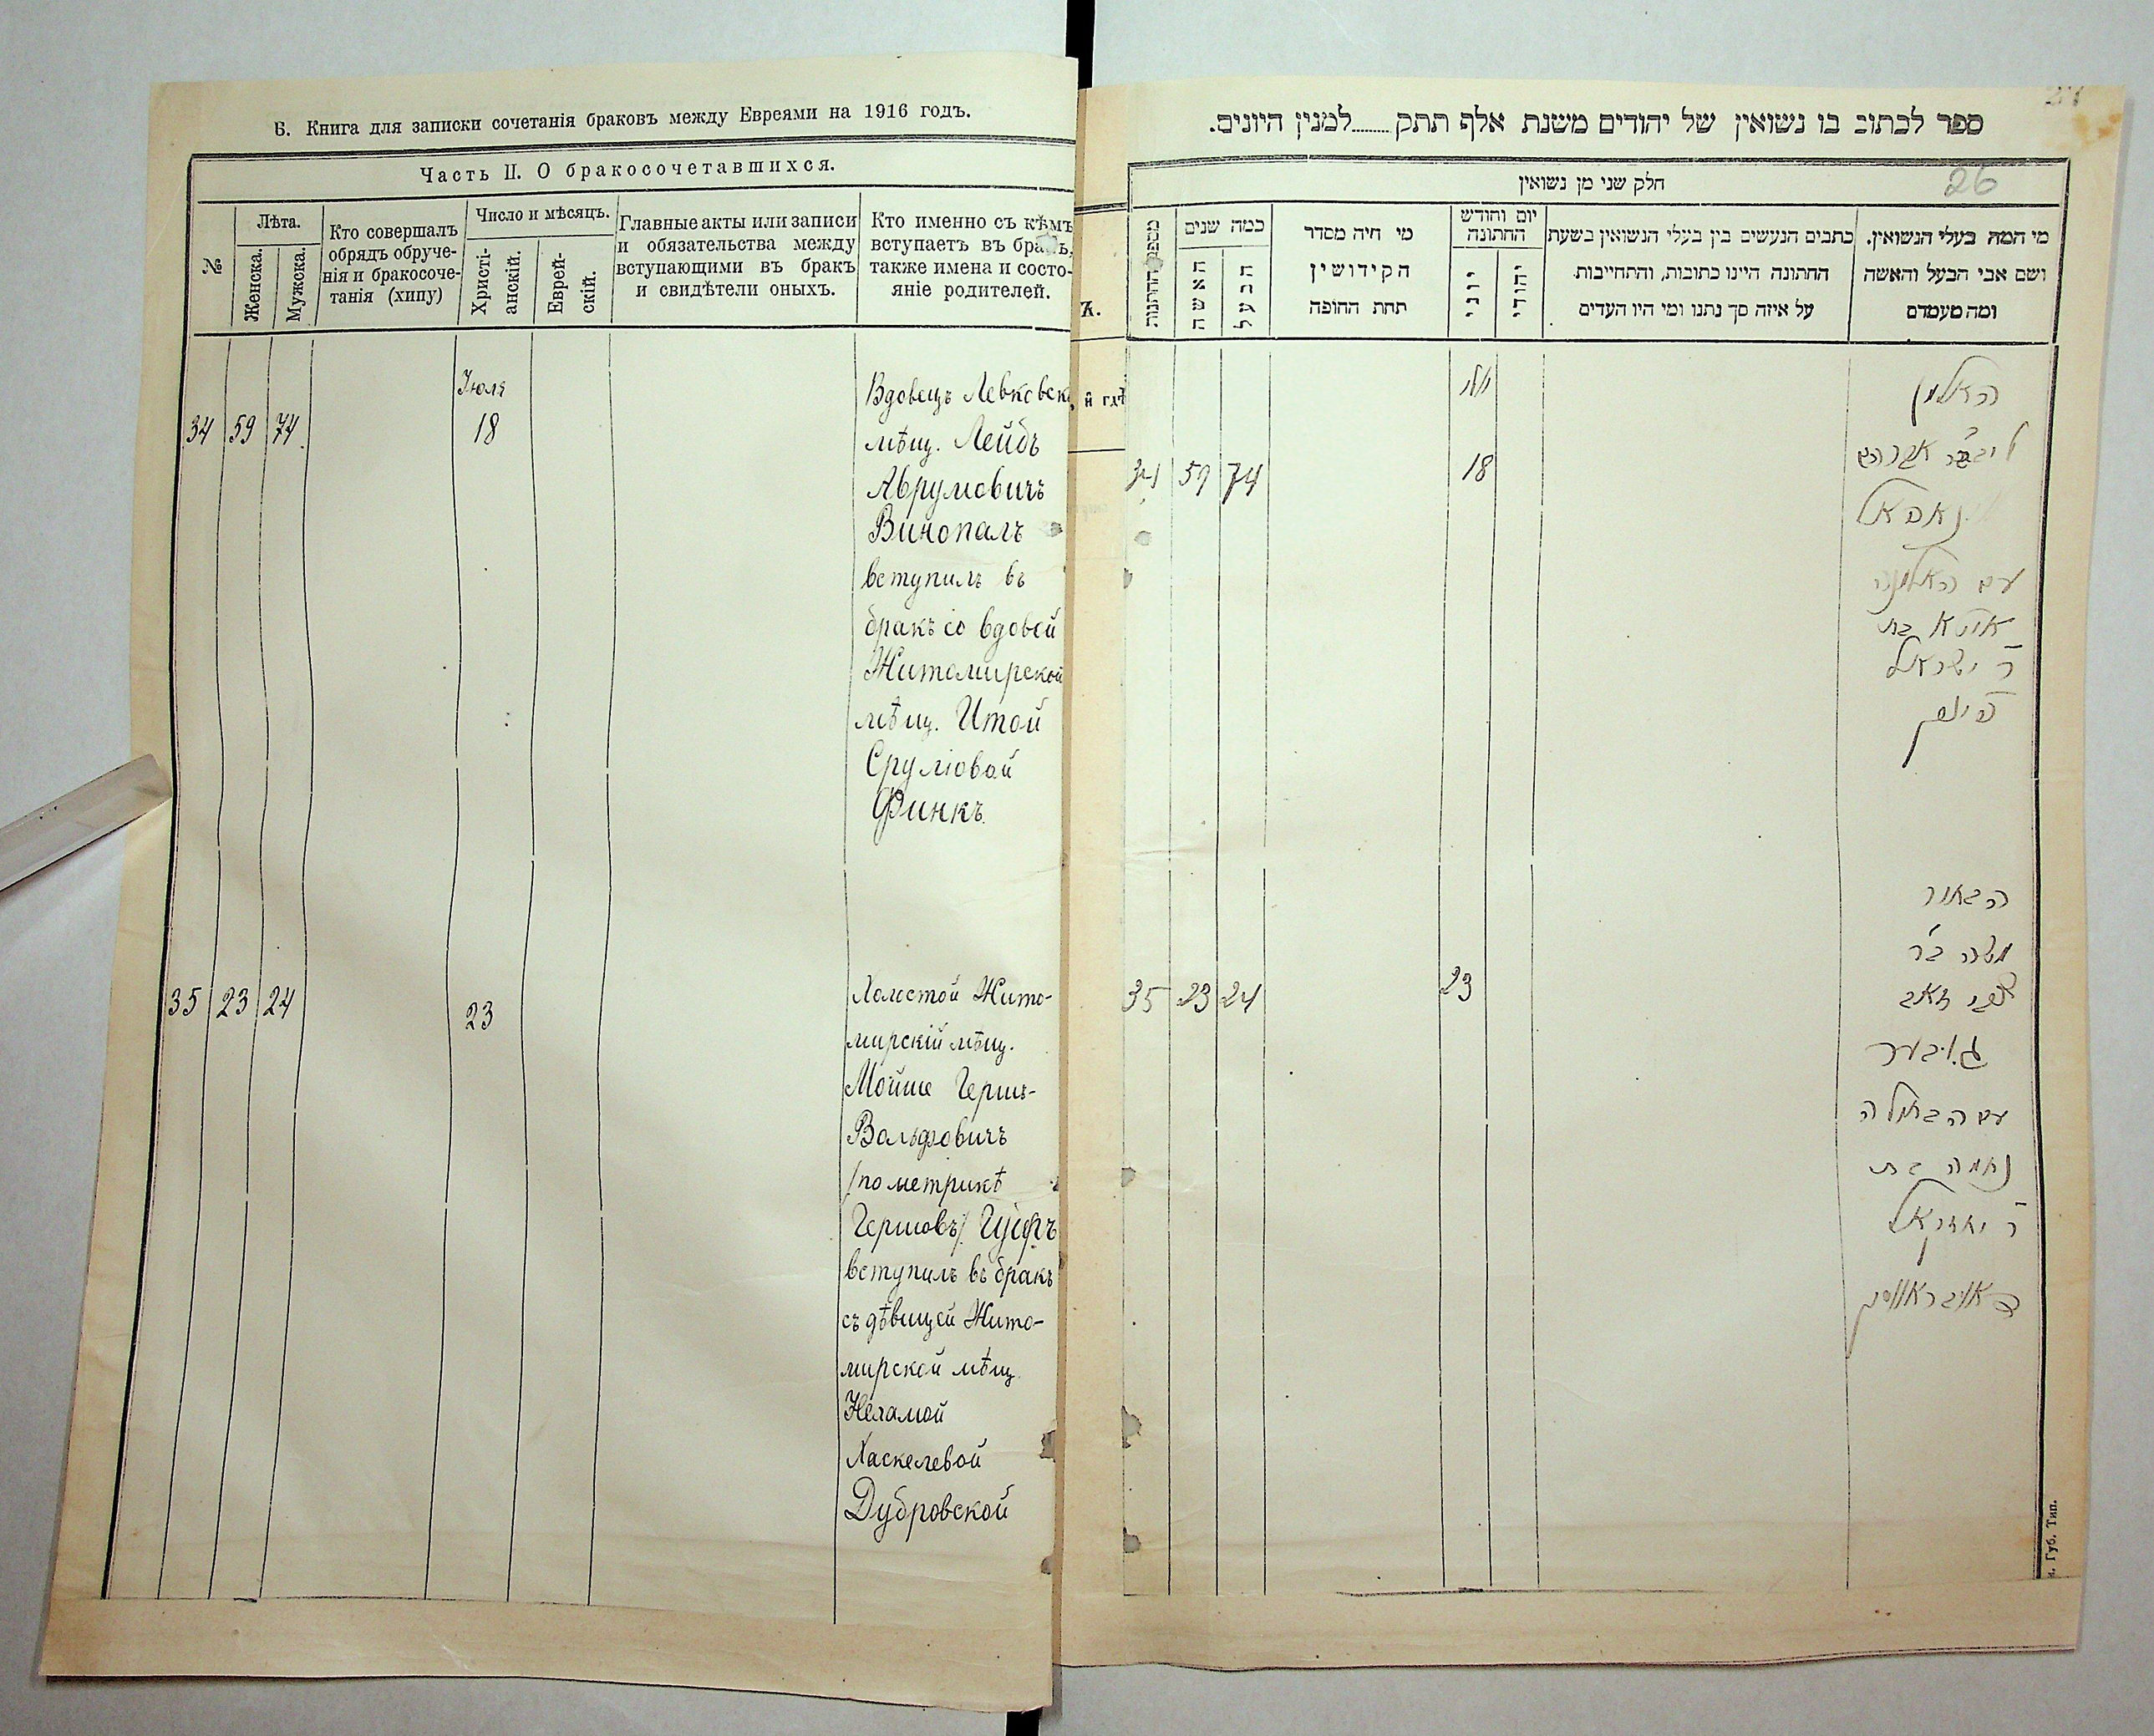 Б. Книга для записки сочетанія браковъ между Евреями на 1916 годъ.
Часть II. О бракосочетавшихся.
№
Лѣта.
Женска.
Мужска.
Кто совершалъ
обрядъ обруче-
нія и бракосоче-
танія (хипу)
Число и мѣсяцъ.
Христі-
анскій.
Еврей-
скій.
Главные акты или записи
и обязательства между
вступающими въ бракъ
и свидѣтели оныхъ.
Кто именно съ кѣмъ
вступаетъ въ бракъ,
также имена и состо-
яніе родителей.
Іюля
34 59 74 18
Вдовецъ Левковск
мѣщ. Лейбъ
Аврумовичъ
Винопалъ
вступилъ въ
бракъ со вдовой
Житомирской
мѣщ. Итой
Срулювой
Финкъ.
35 23 24 23
Холостой Жито-
мирскій мѣщ.
Мойше Герш-
Вольфовичъ
/по метрикѣ
Гершовъ/
вступилъ въ бракъ
съ дѣвицей Жито-
мирской мѣщ
Нехамой
Хаскелевой
Дубровской
ספר לכתוב בו נשואין של יהודים משנת אלף תתק למנין היונים.
26
חלק שני מן נשואין
מספר החתונות
כמה שנים
האשה
הבעל
מי היה מסדר
הקידושין
תחת החופה
יום וחודש
החתונה
יוני
יהודי
כתבים הנעשים בין בעלי הנשואין בשעת
החתונה היינו כתובות, והתחייבות
על איזה סך נתנו ומי היו העדים
מי המה בעלי הנשואין.
ושם אבי הבעל והאשה
ומה מעמדם
יולי
34 59 74 18
האלמן
ליב ב״ר אברהם
עם האלמנה
איטא בת
ר ישראל
פינק
35 23 24 23
הבחור
משה ב״ר
צבי זאב
עם הבתולה
נחמה בת
ר יחזקאל
דאובראווסק
. Губ. Тип.